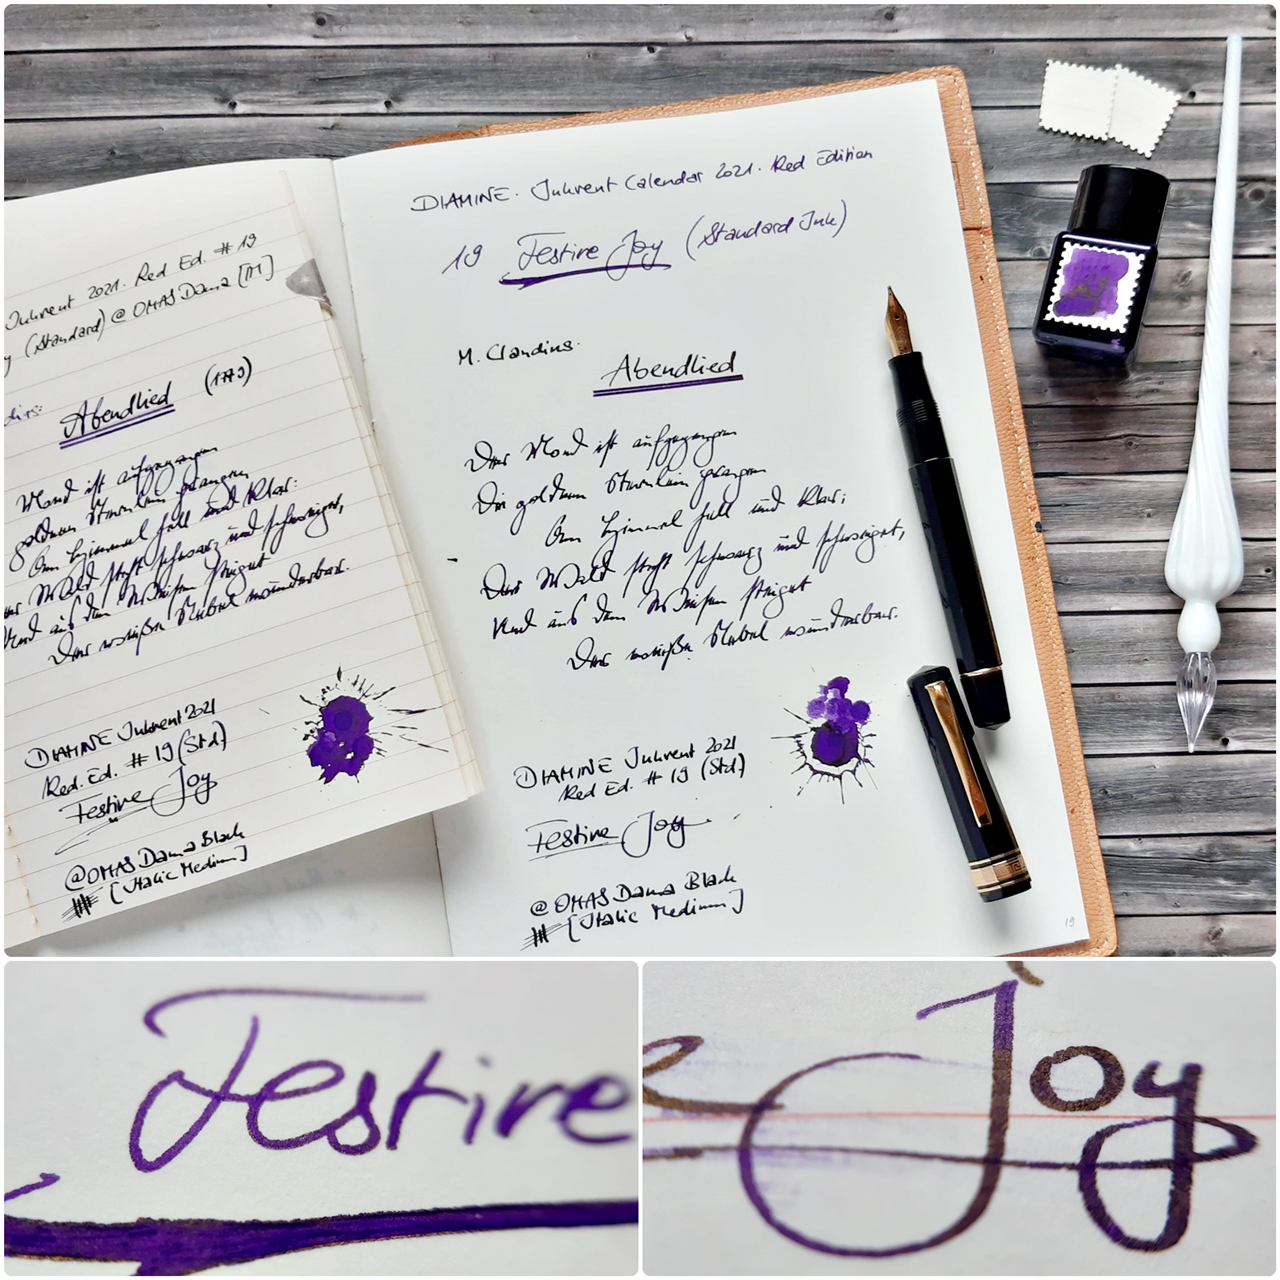 Inkvent 2021. Red Ed. # 19
y (Standard) @ OMAS Dama [M]
Abendlied (1779)
Mond ist aufgegangen
goldnen Sternlein prangen
Am Himmel hell und klar:
Wald steht schwarz und schweiget,
Und aus den Wiesen steiget
Der weiße Nebel wunderbar.
DIAMINE Inkvent 2021
Red. Ed. # 19 (Std)
Festive Joy
@OMAS Dama Black
[Italic Medium]
DIAMINE. Inkvent Calendar 2021. Red Edition
19 Festive Joy (Standard Ink)
M. Claudius.
Abendlied
Der Mond ist aufgegangen
Die goldnen Sternlein prangen
Am Himmel hell und klar;
Der Wald steht schwarz und schweiget,
Und aus den Wiesen steiget
Der weiße Nebel wunderbar.
DIAMINE Inkvent 2021
Red Ed. # 19 (Std.)
Festive Joy
@OMAS Dama Black
[Italic Medium]
19
Festive
e Joy